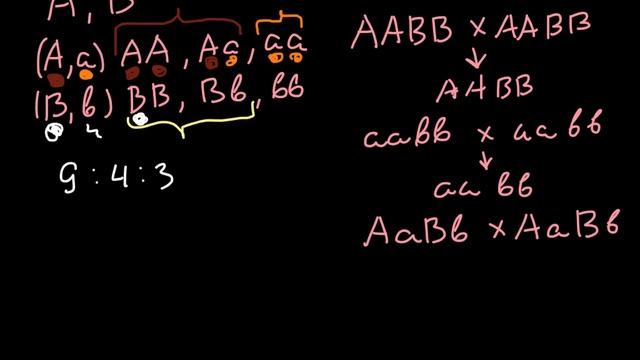 A, B
(A,a) AA, Aa, aa
(B,b) BB, Bb, bb
9:4:3
AABB x AABB
AABB
aabb x aabb
aabb
AaBb x AaBb